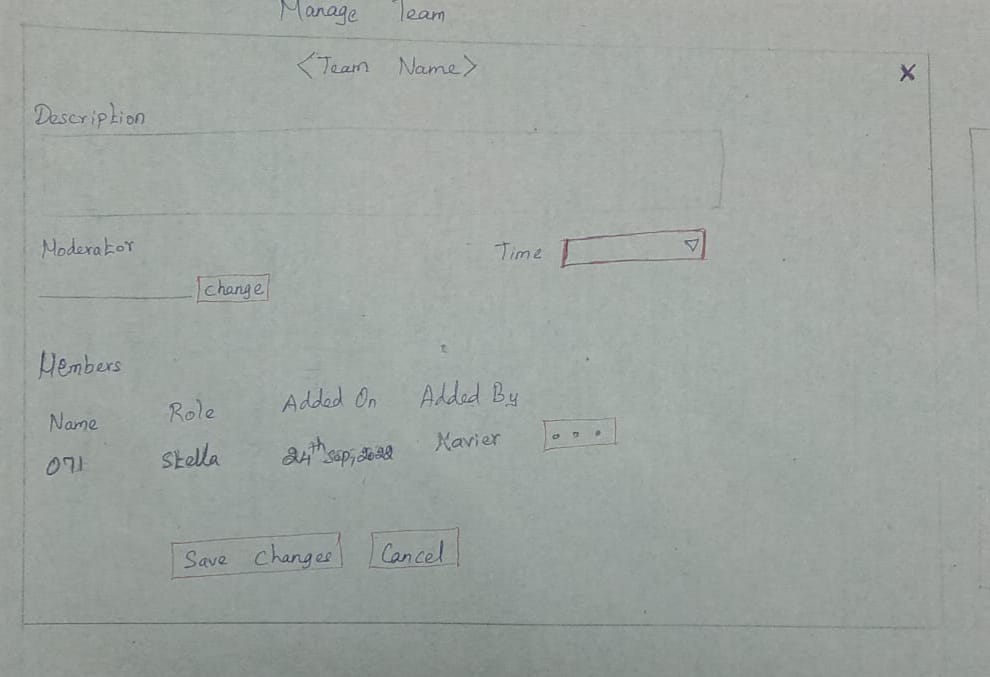 Manage Team
<Team Name>
X
Description
Moderator
Time
Change
Members
Name Role Added On Added By
071 Stella 24th Sep, 2022 Xavier
Save Changes Cancel